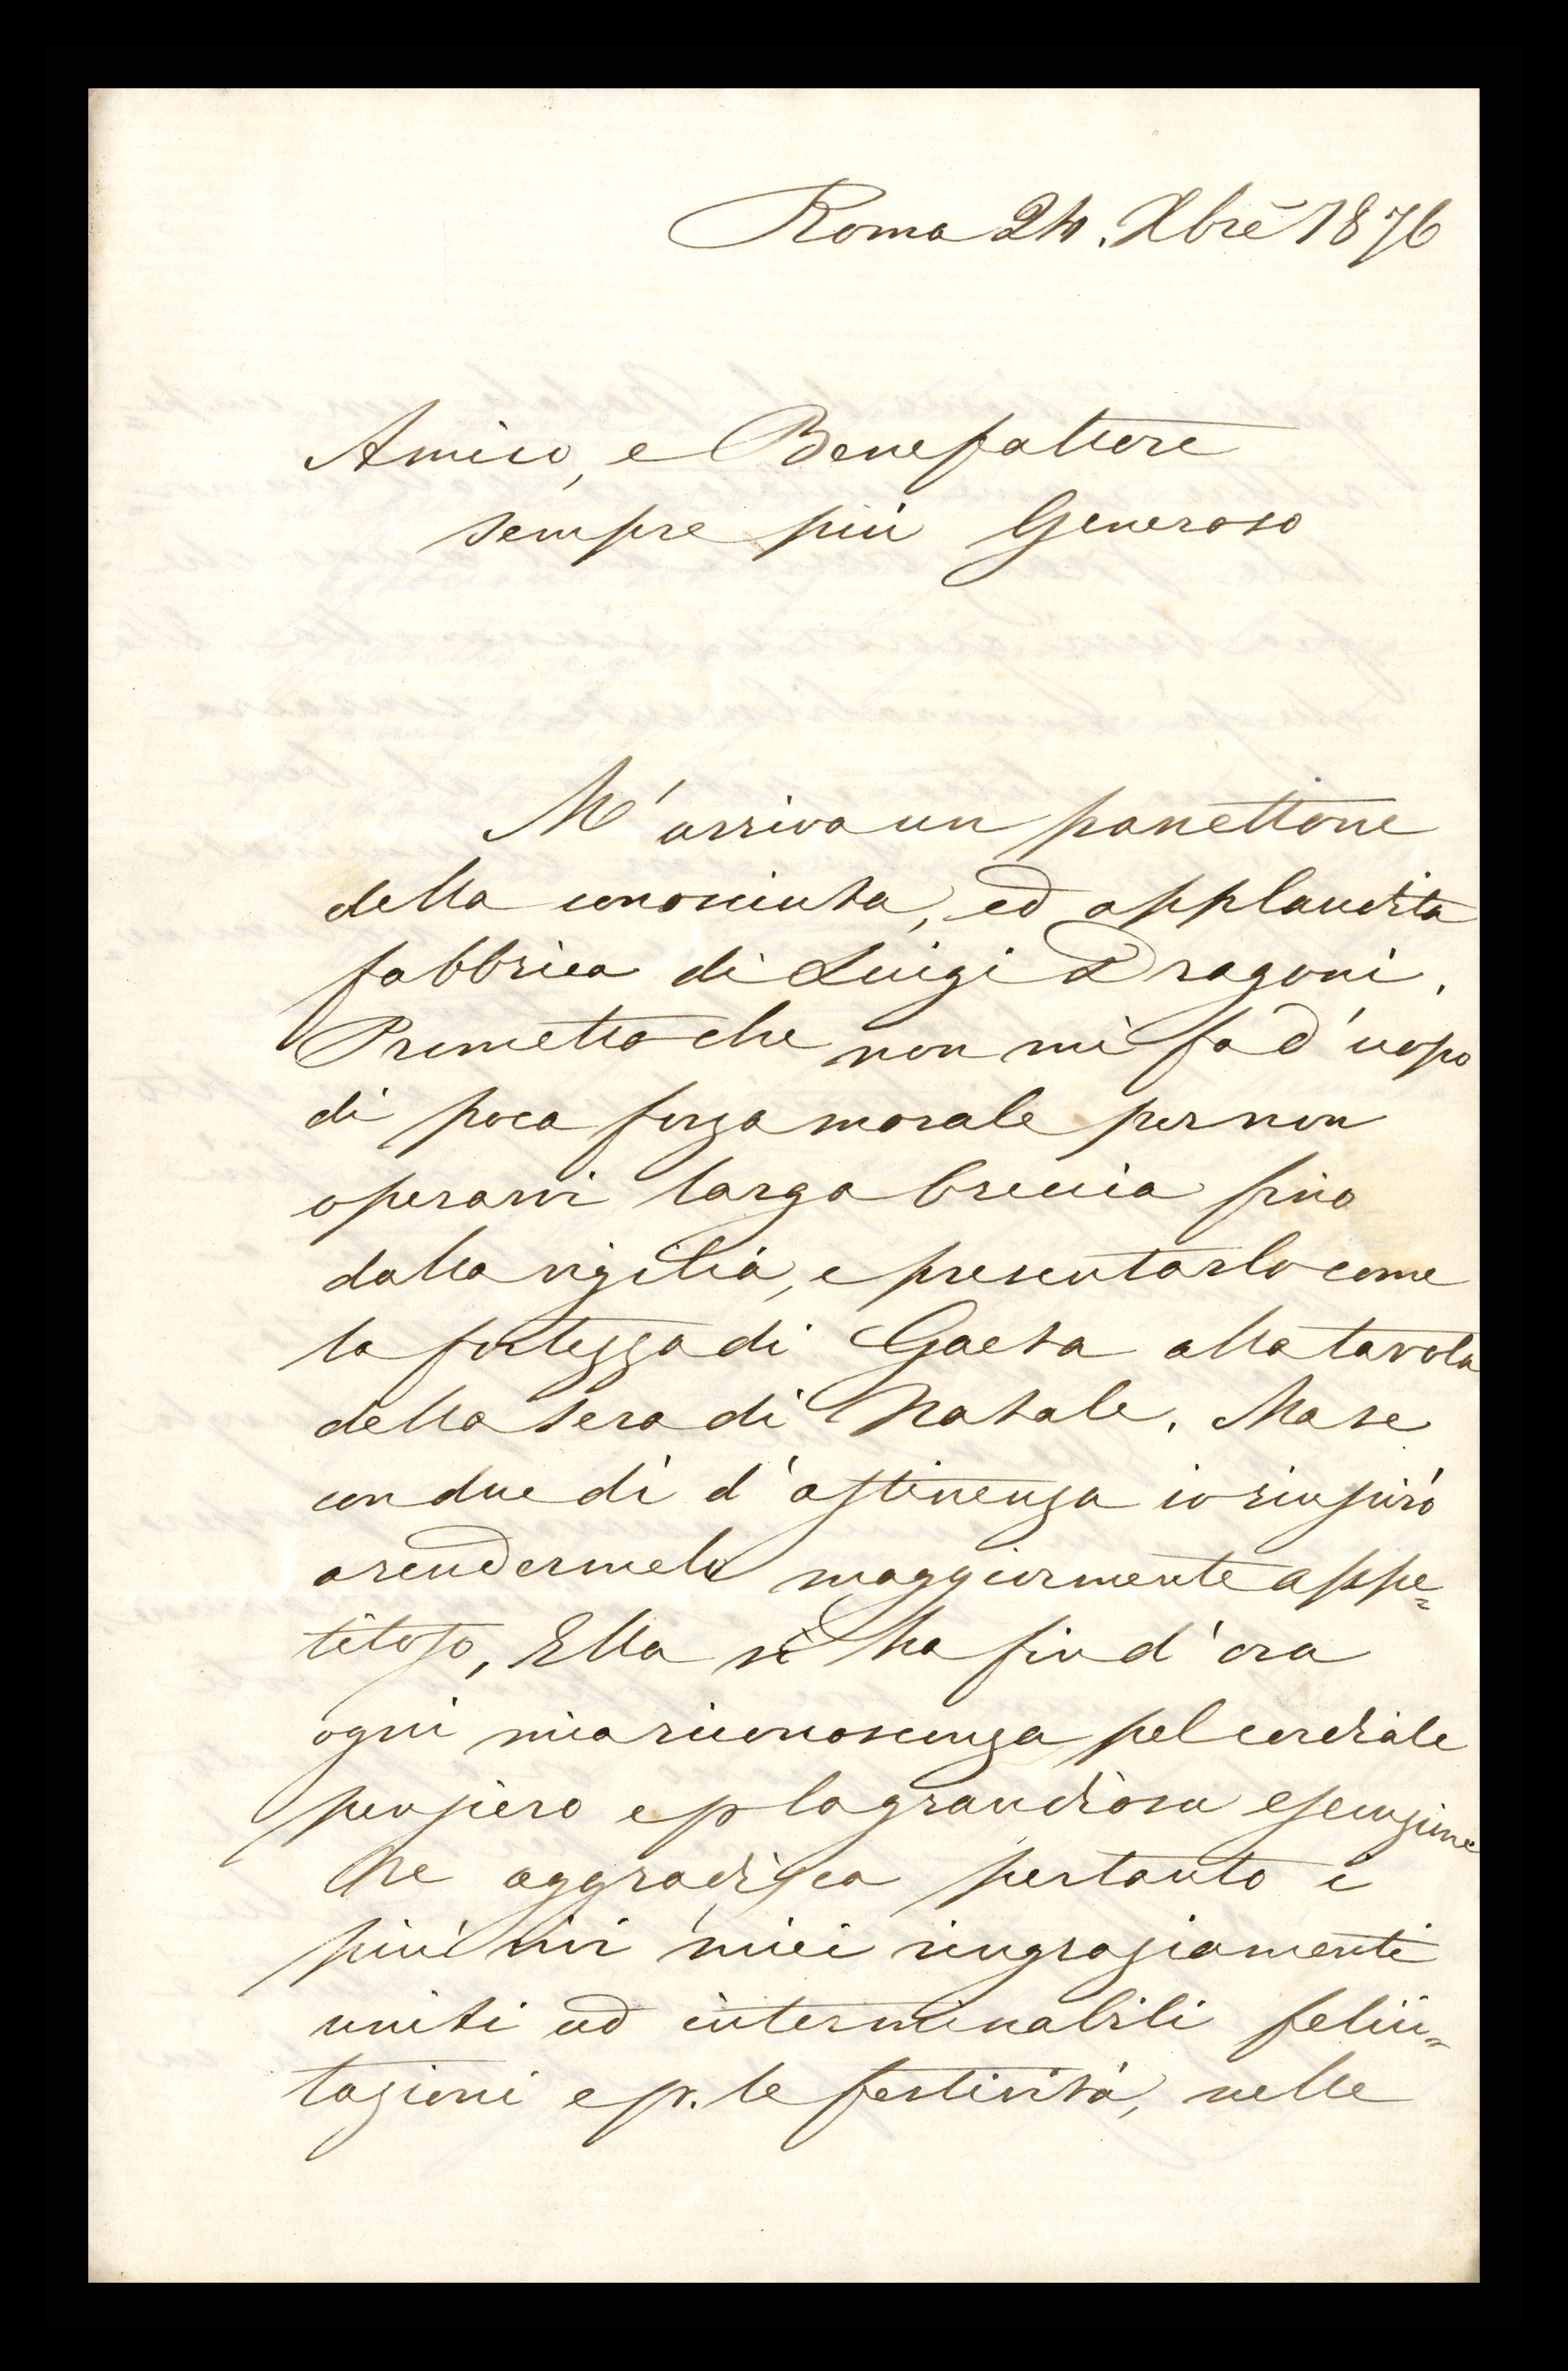 Roma 24. Xbrē 1876
Amico, e Benefattore
sempre più Generoso
M'arriva un panettone
della conosciuta, ed applaudita
fabbrica di Luigi Dragoni.
Prometto che non mi fa d'uopo
di poca forza morale per non
operarvi larga breccia fino
dalla vigilia, e presentarlo come
la fortezza di Gaeta alla tavola
della sera di Natale. Ma se
con due dì d'astinenza io riuscirò
a rendermelo maggiormente appe=
titoso, Ella si ha fin d'ora
ogni mia riconoscenza pel cordiale
pensiero e p la grandiosa esecuzione
Ne aggradisca pertanto i
più vivi miei ringraziamenti
uniti ad interminabili felici=
tazioni e p. le festività, nelle